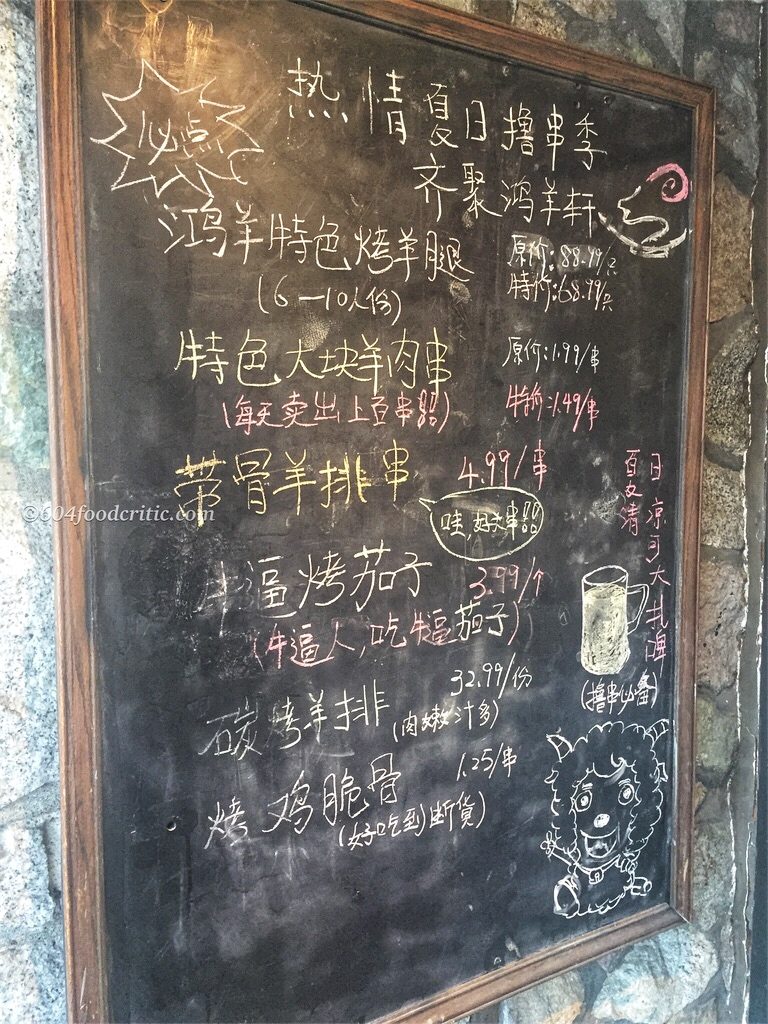 必点
热情夏日撸串季
齐聚鸿羊轩
鸿羊特色烤羊腿
(6—10人份)
原价:88.99/只
特价:68.99/只
特色大块羊肉串
原价:1.99/串
(每天卖出上百串喔)
特价:1.49/串
带骨羊排串
4.99/串
哇,好大串喔
牛逼烤茄子
3.99/个
(牛逼人,吃牛逼茄子)
碳烤羊排
32.99/份
(肉嫩汁多)
烤鸡脆骨
1.25/串
(好吃到断货)
夏日
清凉
可大扎啤
(撸串必备)
©604foodcritic.com